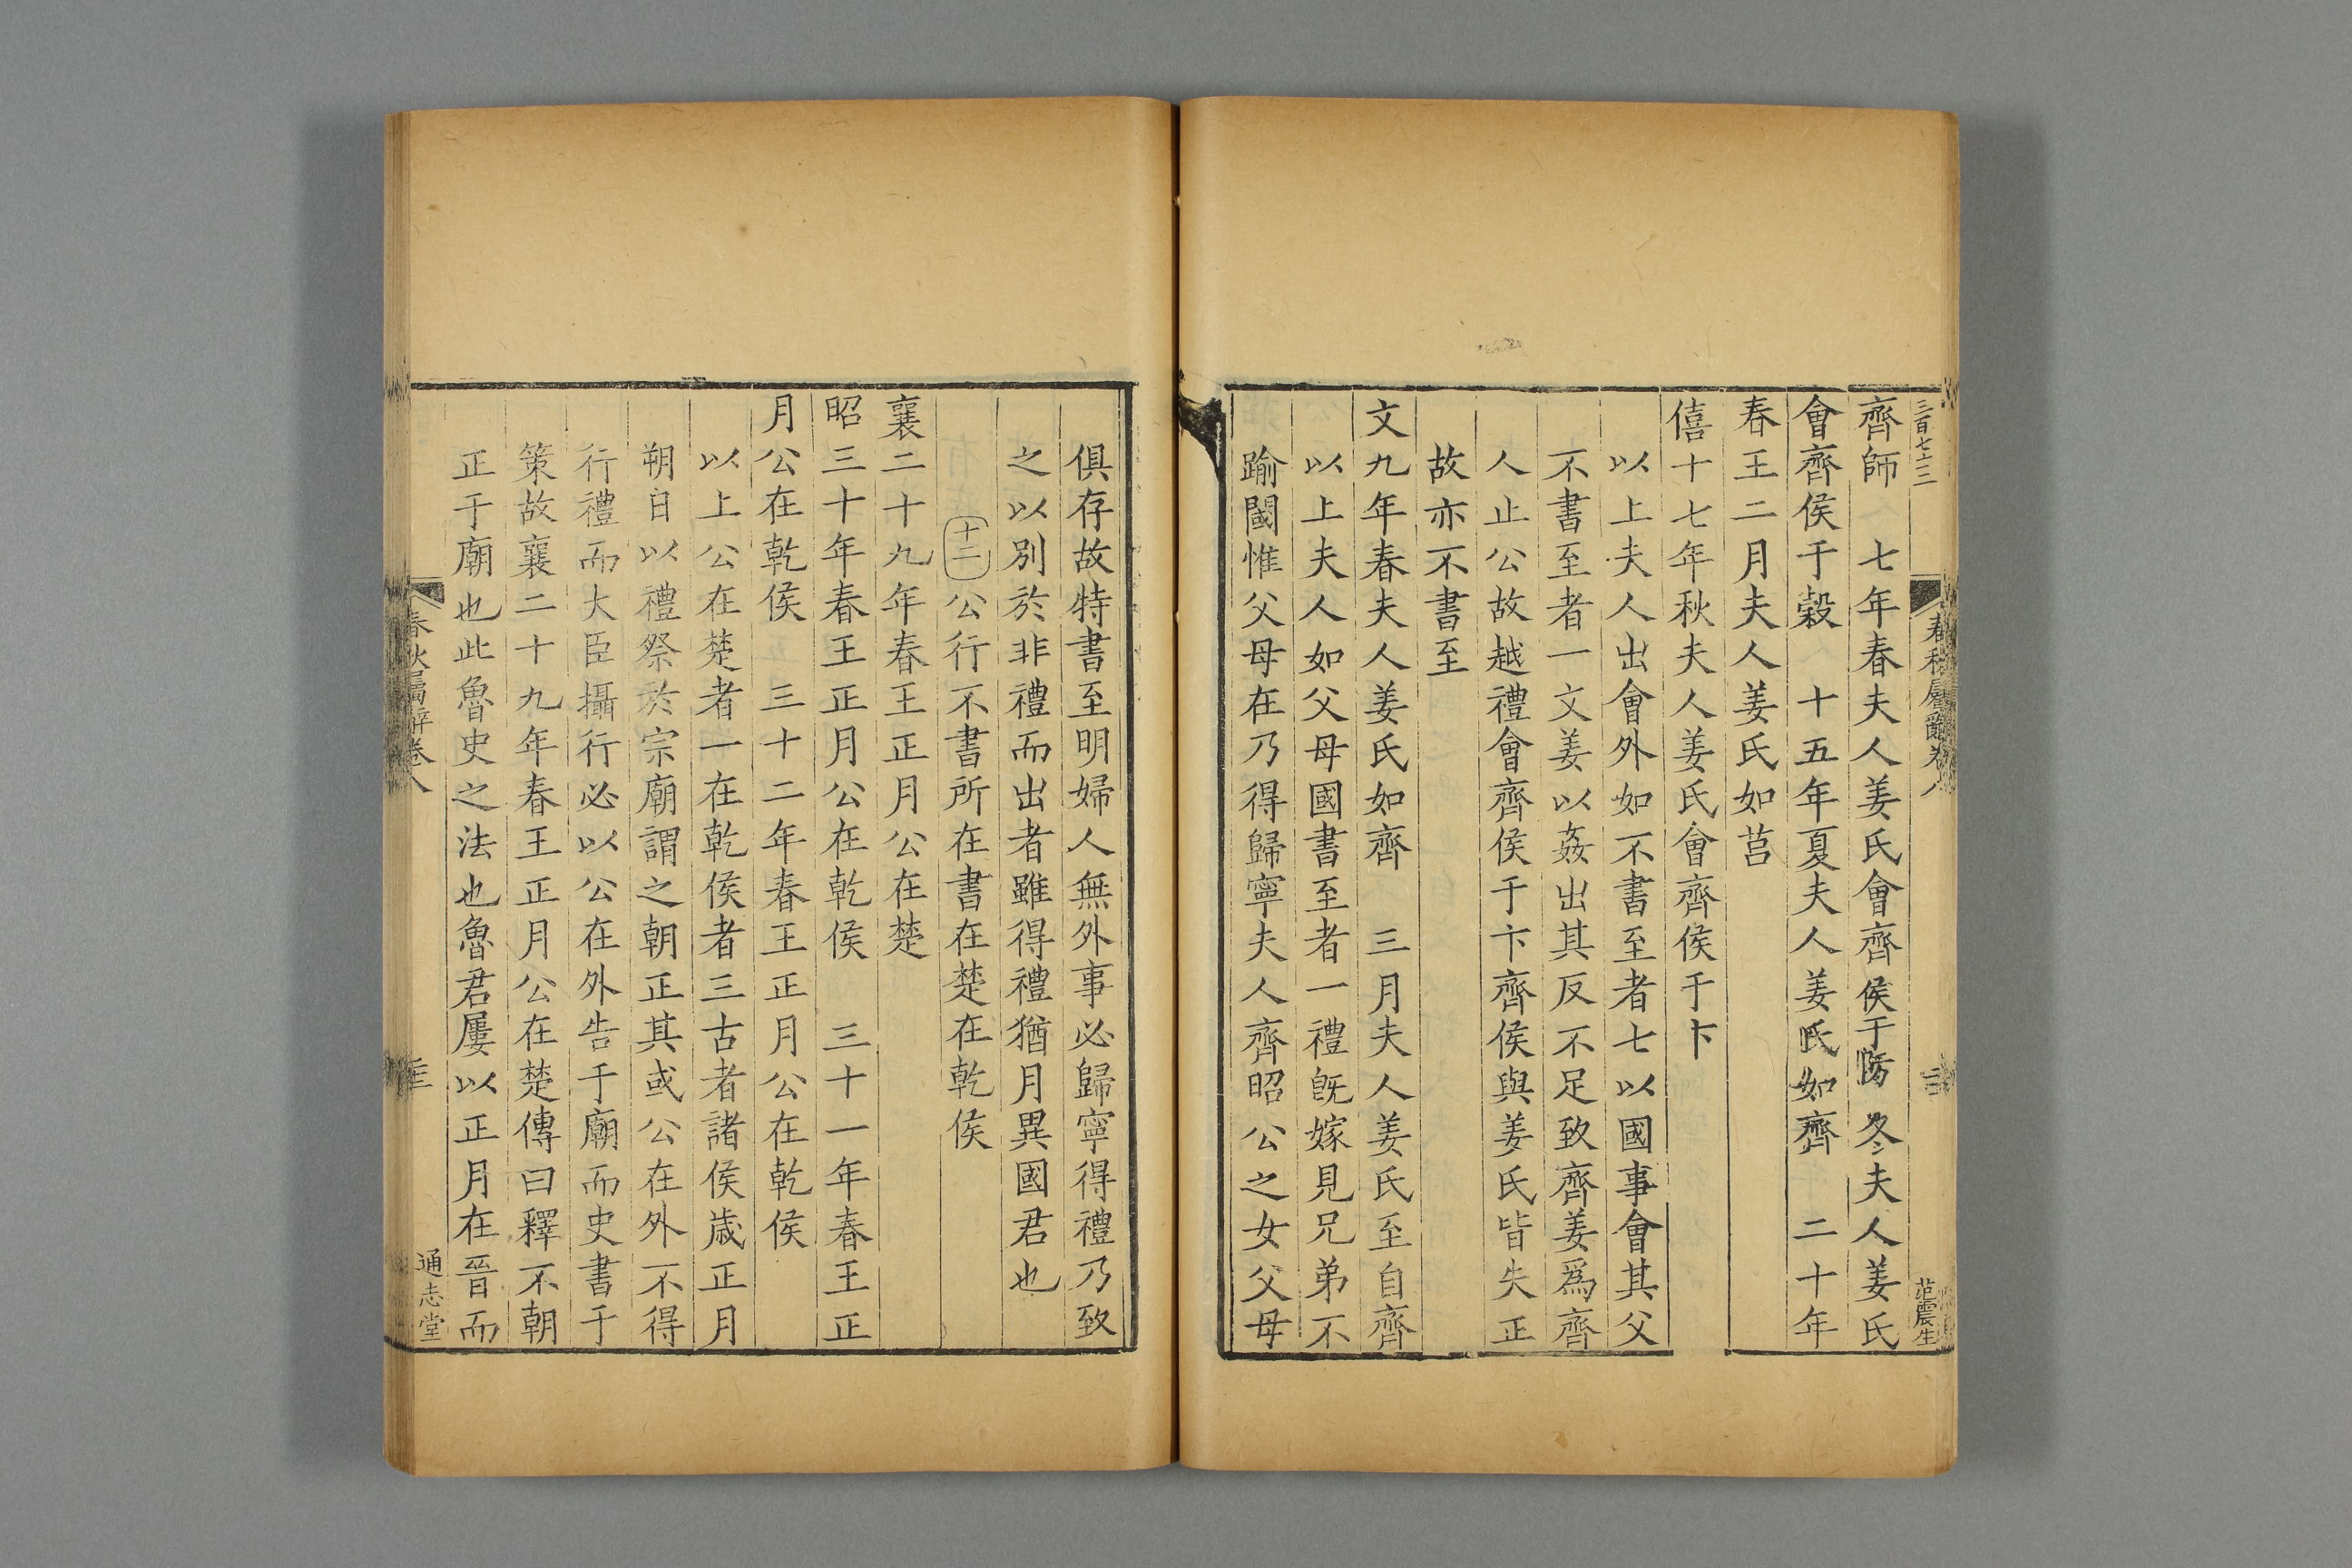 三百七十三
春秋屬辭卷八
范震生
齊師　七年春夫人姜氏會齊侯于防　冬夫人姜氏
會齊侯于穀　十五年夏夫人姜氏如齊　二十年
春王二月夫人姜氏如莒
僖十七年秋夫人姜氏會齊侯于卞
以上夫人出會外如不書至者七以國事會其父
不書至者一文姜以姦出其反不足致齊姜爲齊
人止公故越禮會齊侯于卞齊侯與姜氏皆失正
故亦不書至
文九年春夫人姜氏如齊　三月夫人姜氏至自齊
以上夫人如父母國書至者一禮旣嫁見兄弟不
踰閾惟父母在乃得歸寧夫人齊昭公之女父母
俱存故特書至明婦人無外事必歸寧得禮乃致
之以別於非禮而出者雖得禮猶月異國君也
十二公行不書所在書在楚在乾侯
襄二十九年春王正月公在楚
昭三十年春王正月公在乾侯　三十一年春王正
月公在乾侯　三十二年春王正月公在乾侯
以上公在楚者一在乾侯者三古者諸侯歲正月
朔日以禮祭於宗廟謂之朝正其或公在外不得
行禮而大臣攝行必以公在外告于廟而史書于
策故襄二十九年春王正月公在楚傳曰釋不朝
正于廟也此魯史之法也魯君屢以正月在晉而
春秋屬辭卷八
通志堂